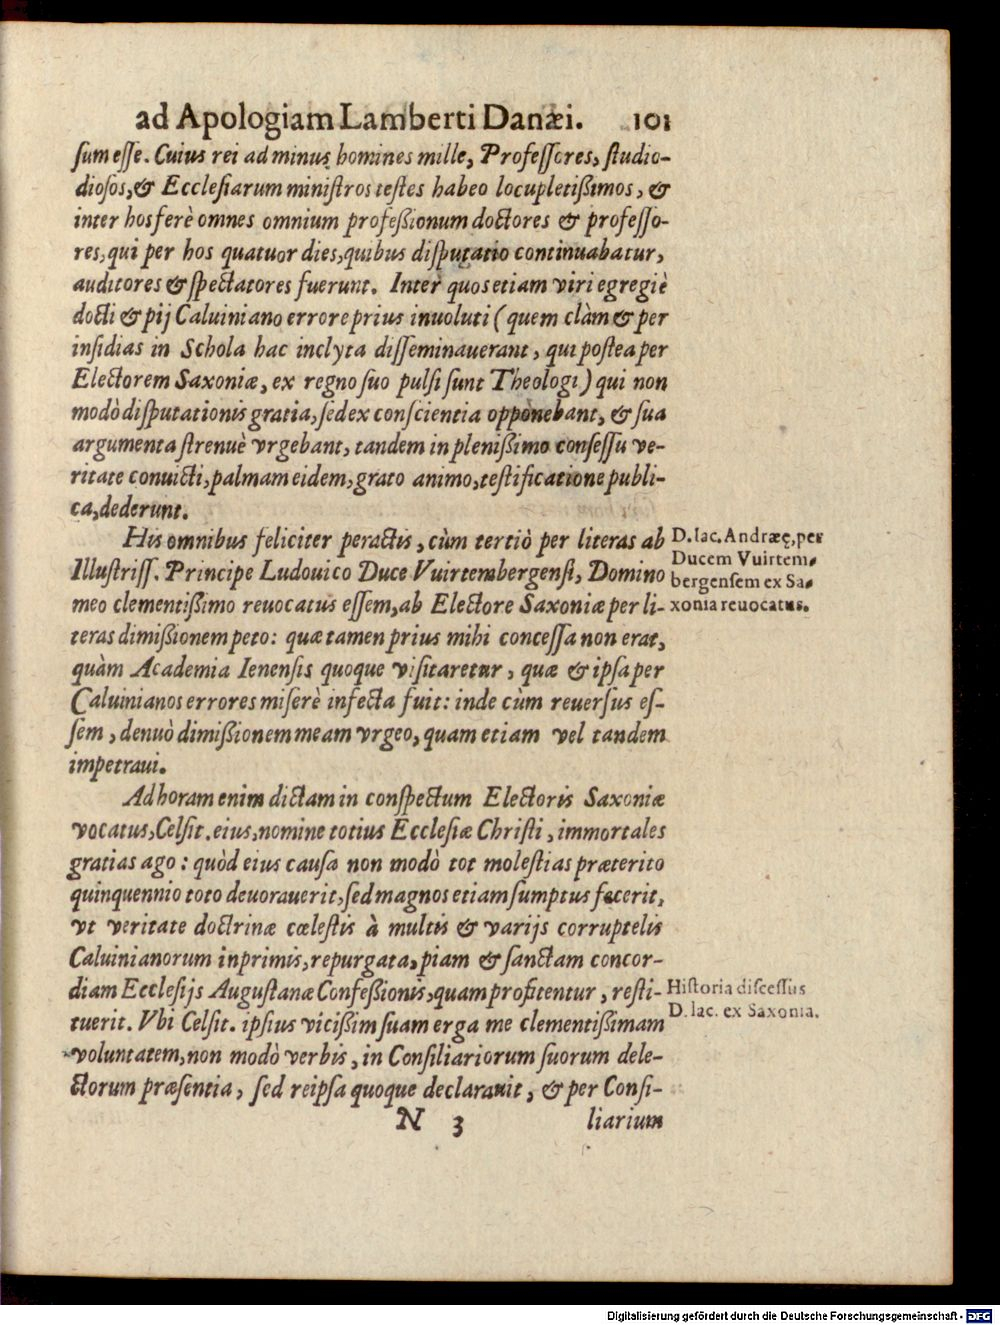 ad Apologiam Lamberti Danæi. 101
ſum eſſe. Cuius rei ad minus homines mille, Profeſſores, ſtudio-
dioſos, & Eccleſiarum miniſtros teſtes habeo locupletißimos, &
inter hos ferè omnes omnium profeßionum doctores & profeſſo-
res, qui per hos quatuor dies, quibus diſputatio continuabatur,
auditores & ſpectatores fuerunt. Inter quos etiam viri egregiè
docti & pij Caluiniano errore prius inuoluti (quem clàm & per
inſidias in Schola hac inclyta diſſeminauerant, qui poſtea per
Electorem Saxoniæ, ex regno ſuo pulſi ſunt Theologi) qui non
modò diſputationis gratia, ſed ex conſcientia opponebant, & ſua
argumenta ſtrenuè vrgebant, tandem in plenißimo conſeſſu ve-
ritate conuicti, palmam eidem, grato animo, teſtificatione publi-
ca, dederunt.
His omnibus feliciter peractis, cùm tertiò per literas ab
Illuſtriſſ. Principe Ludouico Duce Vuirtembergenſi, Domino
meo clementißimo reuocatus eſſem, ab Electore Saxoniæ per li-
teras dimißionem peto: quæ tamen prius mihi conceſſa non erat,
quàm Academia Ienenſis quoque viſitaretur, quæ & ipſa per
Caluinianos errores miſerè infecta fuit: inde cùm reuerſus eſ-
ſem, denuò dimißionem meam vrgeo, quam etiam vel tandem
impetraui.
D. Iac. Andræę, per
Ducem Vuirtem-
bergenſem ex Sa-
xonia reuocatus.
Ad horam enim dictam in conſpectum Electoris Saxoniæ
vocatus, Celſit. eius, nomine totius Eccleſiæ Chriſti, immortales
gratias ago: quòd eius cauſa non modò tot moleſtias præterito
quinquennio toto deuorauerit, ſed magnos etiam ſumptus fecerit,
vt veritate doctrinæ cœleſtis à multis & varijs corruptelis
Caluinianorum inprimis, repurgata, piam & ſanctam concor-
diam Eccleſijs Auguſtanæ Confeßionis, quam profitentur, reſti-
tuerit. Vbi Celſit. ipſius vicißim ſuam erga me clementißimam
voluntatem, non modò verbis, in Conſiliariorum ſuorum dele-
ctorum præſentia, ſed reipſa quoque declarauit, & per Conſi-
Hiſtoria diſceſſus
D. Iac. ex Saxonia.
N 3 liarium
Digitalisierung gefördert durch die Deutsche Forschungsgemeinschaft - DFG